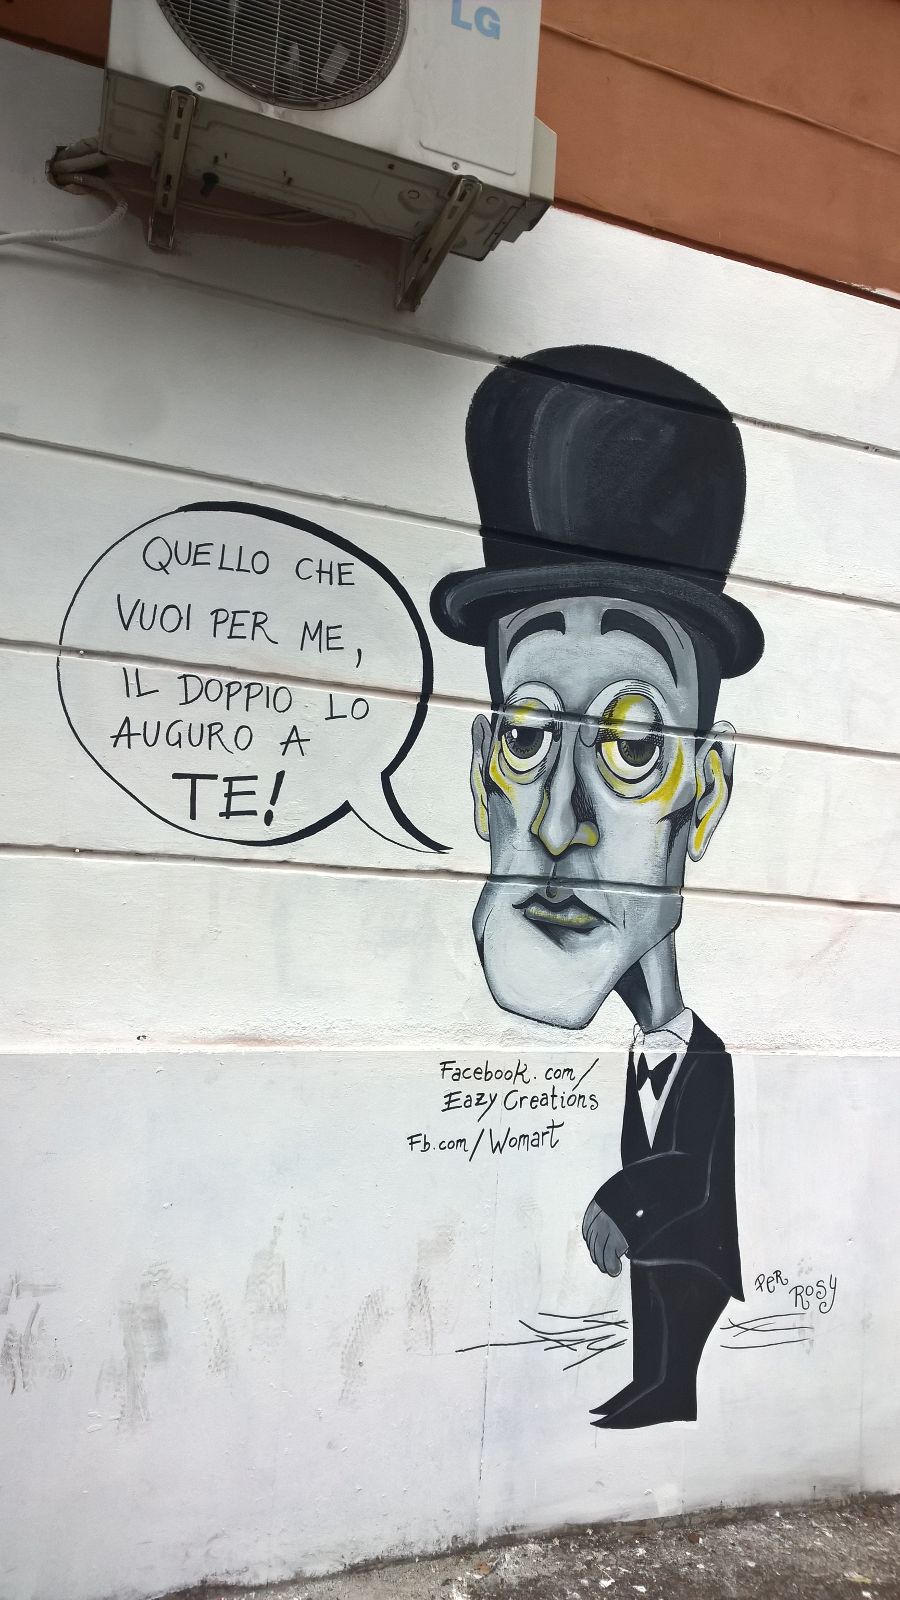 LG
QUELLO CHE
VUOI PER ME,
IL DOPPIO LO
AUGURO A
TE!
Facebook.com/
Eazy Creations
Fb.com/Womart
PeR
RoSy